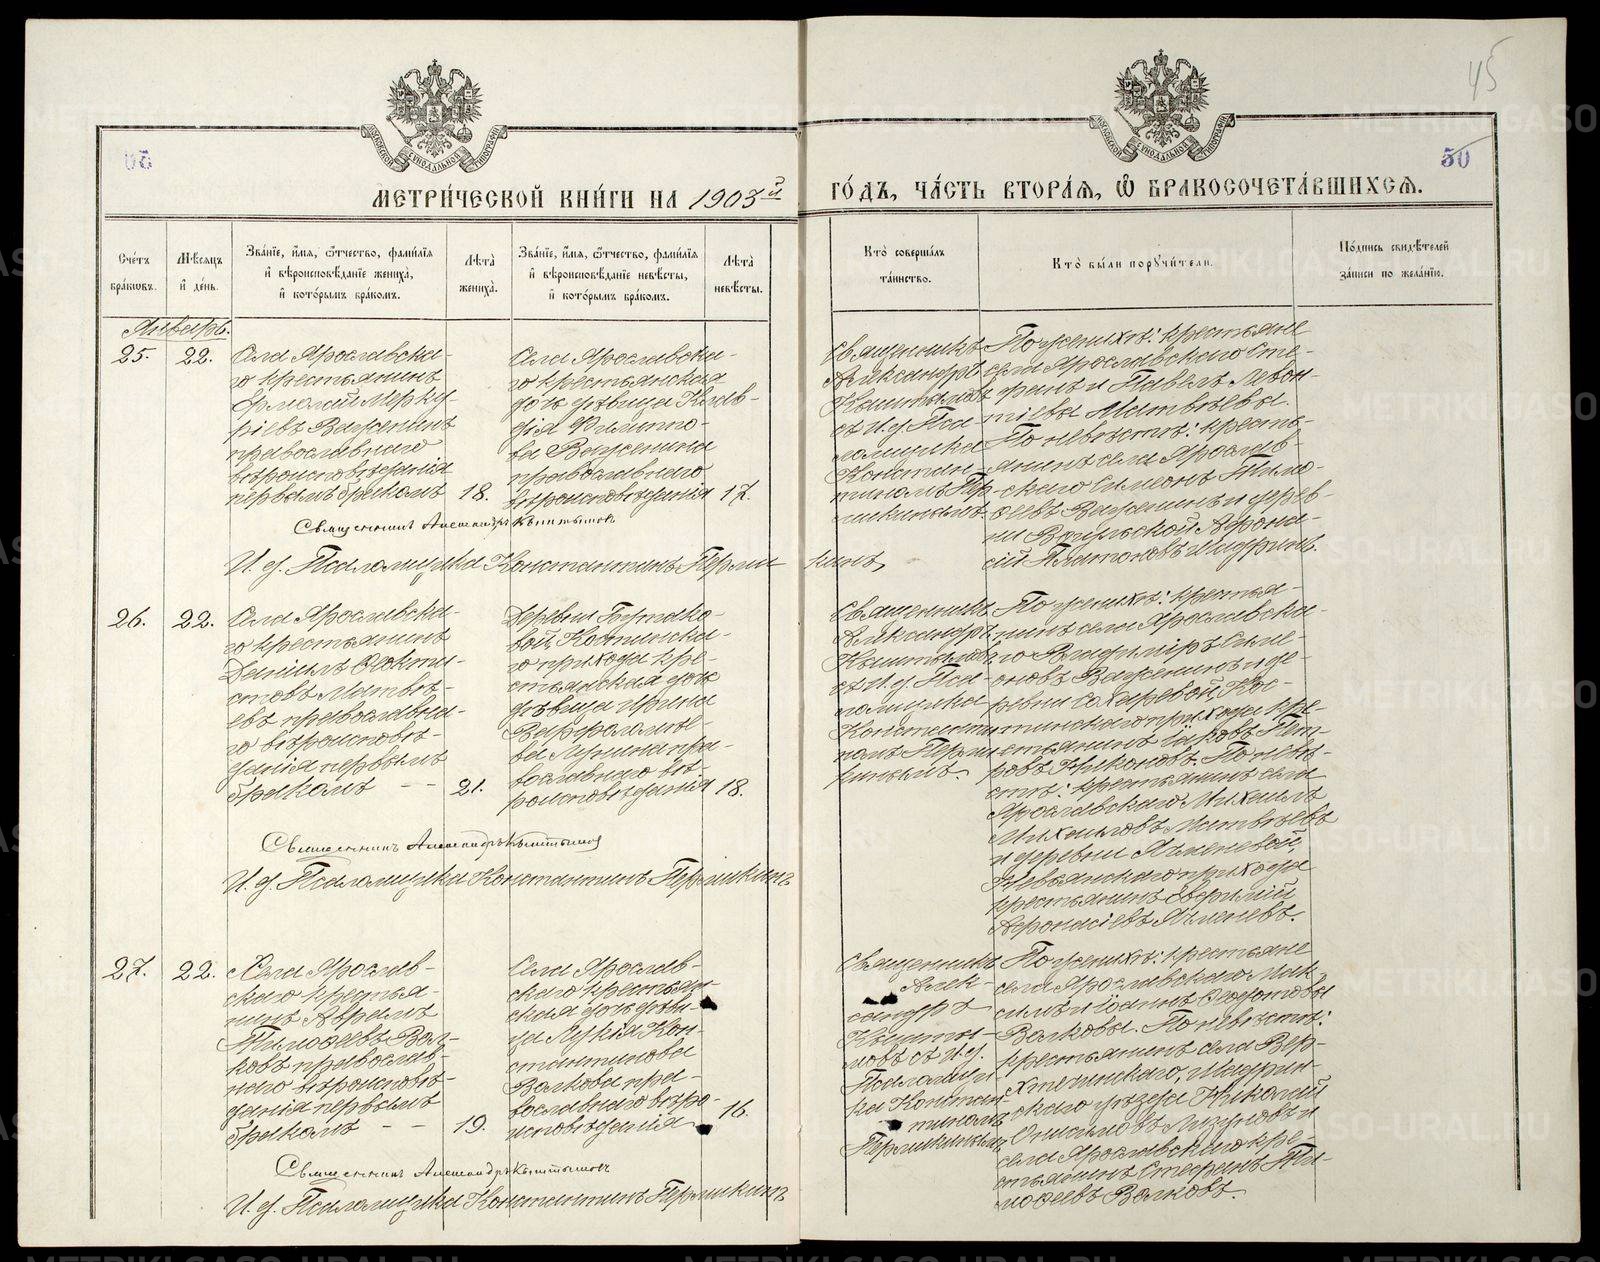 45
50
МЕТРИ́ЧЕСКОЙ КНИ́ГИ НА 1903й ГО́ДЪ, ЧА́СТЬ ВТОРА́Я, Ѿ БРАКОСОЧЕТА́ВШИХСЯ.
Сче́тъ бра́кωвъ.
Мѣ́сяцъ и҆ де́нь.
Зва́нїе, и҆́мя, ѻ҆́тчество, фами́лїя и҆ вѣроисповѣ́данїе жениха̀, и҆ кото́рымъ бра́комъ.
Лѣта̀ жениха̀.
Зва́нїе, и҆́мя, ѻ҆́тчество, фами́лїя и҆ вѣроисповѣ́данїе невѣ́сты, и҆ кото́рымъ бра́комъ.
Лѣта̀ невѣ́сты.
Кто̀ соверша́лъ та́инство.
Кто̀ бы́ли порꙋчи́тели.
По́дпись свидѣ́телей за́писи по жела́нїю.
Январь.
25.
22.
Села Ярославска-
го крестьянинъ
Ермолай Мерку-
ріевъ Важенинъ
православнаго
вѣроисповѣданія
первымъ бракомъ
18.
Села Ярославска-
го крестьянская
дочь дѣвица Клав-
дія Филиппо-
ва Важенина
православнаго
вѣроисповѣданія
17.
Священникъ
Александръ
Кыштымовъ
съ И. д. Пса-
ломщика
Констан-
тиномъ Пер-
микинымъ.
По женихѣ: крестьяне
села Ярославскаго Сте-
фанъ и Павелъ Леон-
тіевы Матвѣевы.
По невѣстѣ: кресть-
янинъ села Ярослав-
скаго Симеонъ Тимо-
ѳеевъ Важенинъ и дерев-
ни
сій Платоновъ
Священникъ Александръ Кыштымовъ
И. д. Псаломщика Константинъ Перми кинъ,
26.
22.
Села Ярославска-
го крестьянинъ
Даніилъ Ѳеокти-
стовъ Матвѣ-
евъ православна-
го вѣроисповѣ-
данія первымъ
бракомъ - -
21.
Деревни Бутако-
вой, Костинска-
го прихода кре-
стьянская дочь
дѣвица Ирина
Варфоломѣе-
ва пра-
вославнаго вѣ-
роисповѣданія
18.
Священникъ
Александръ
Кыштымовъ
съ И. д. Пса-
ломщика
Константи-
номъ Перми-
кинымъ.
По женихѣ: крестья
нинъ села Ярославска-
го Владиміръ Симе-
оновъ Важенинъ и де-
ревни Сохаревой, Кос-
тинскаго прихода кре-
стьянинъ Пет-
ровъ Никоновъ. По невѣ-
стѣ: крестьянинъ села
Ярославскаго Михаилъ
Михаиловъ Матвѣевъ
и деревни Ячменевой,
Невьянскаго прихода
крестьянинъ Евфимій
Аѳонасіевъ Ячменевъ.
Священникъ Александръ Кыштымовъ
И. д. Псаломщика Константинъ Пермикинъ
27.
22.
Села Ярослав-
скаго крестья-
нинъ Авраамъ
Тимоѳеевъ Вол-
ковъ православ-
наго вѣроисповѣ-
данія первымъ
бракомъ - -
19.
Села Ярослав-
скаго крестьян-
ская дочь дѣви-
ца Лукія Кон-
стантинова
Волкова пра-
вославнаго вѣро-
исповѣданія
16.
Священникъ
Алек-
сандръ
Кышты-
мовъ съ И. д.
Псаломщи
ка Констан-
тиномъ
Пермикинымъ
По женихѣ: крестьяне
села Ярославскаго Мак
симъ и Іоаннъ Ѳедотовы
Волковы. По невѣстѣ:
крестьянинъ села Вер-
хтечинскаго, Шадрин-
скаго уѣзда Николай
Онисимовъ Лизуновъ и
села Ярославскаго кре
стьянинъ Стефанъ Ти-
моѳеевъ Волковъ.
Священникъ Александръ Кыштымовъ
И. д. Псаломщика Константинъ Пермикинъ